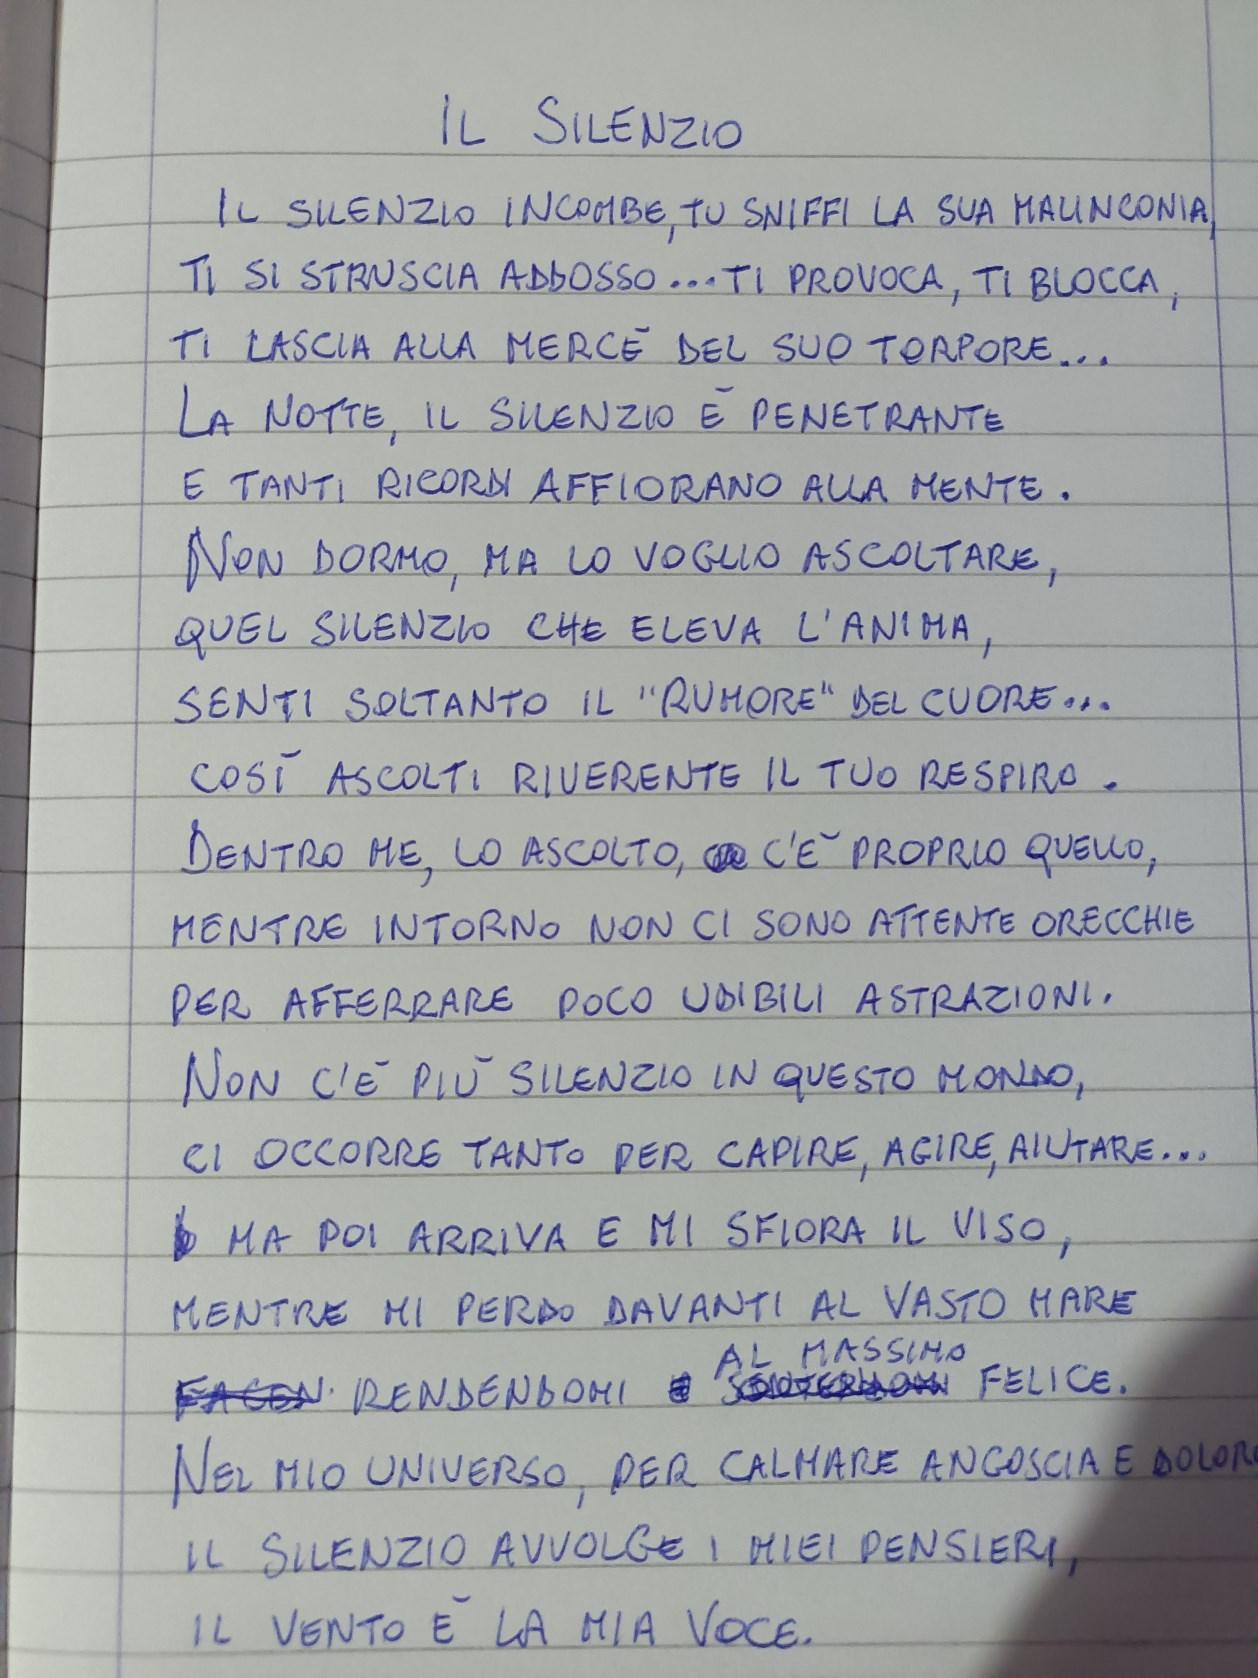 IL SILENZIO
IL SILENZIO INCOMBE, TU SNIFFI LA SUA MALINCONIA,
TI SI STRUSCIA ADDOSSO...TI PROVOCA, TI BLOCCA,
TI LASCIA ALLA MERCÉ DEL SUO TORPORE...
LA NOTTE, IL SILENZIO È PENETRANTE
E TANTI RICORDI AFFIORANO ALLA MENTE.
NON DORMO, MA LO VOGLIO ASCOLTARE,
QUEL SILENZIO CHE ELEVA L'ANIMA,
SENTI SOLTANTO IL "RUMORE" DEL CUORE...
COSÌ ASCOLTI RIVERENTE IL TUO RESPIRO.
DENTRO ME, LO ASCOLTO, C'È PROPRIO QUELLO,
MENTRE INTORNO NON CI SONO ATTENTE ORECCHIE
PER AFFERRARE POCO UDIBILI ASTRAZIONI.
NON C'È PIÙ SILENZIO IN QUESTO MONDO,
CI OCCORRE TANTO PER CAPIRE, AGIRE, AIUTARE...
MA POI ARRIVA E MI SFIORA IL VISO,
MENTRE MI PERDO DAVANTI AL VASTO MARE
AL MASSIMO
RENDENDOMI FELICE.
NEL MIO UNIVERSO, PER CALMARE ANGOSCIA E DOLORE
IL SILENZIO AVVOLGE I MIEI PENSIERI,
IL VENTO È LA MIA VOCE.